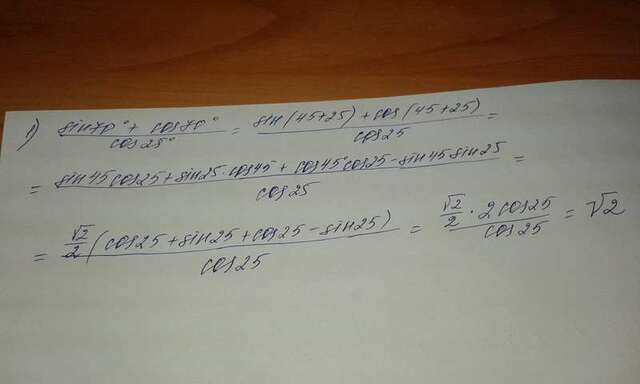 1) (sin70° + cos70°)/cos25° = (sin(45+25) + cos(45+25))/cos25 =
= (sin45 cos25 + sin25 · cos45 + cos45° cos25 - sin45 sin25)/cos25 =
= (√2/2 (cos25 + sin25 + cos25 - sin25))/cos25 = (√2/2 · 2cos25)/cos25 = √2